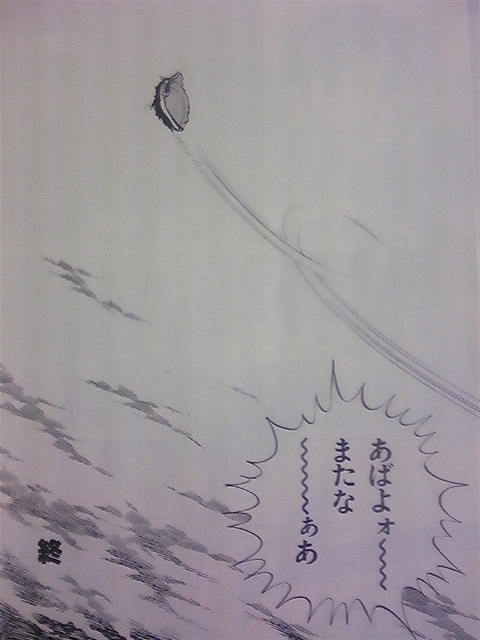 あばよォ〜〜〜
またな
〜〜〜〜〜ぁあ
終